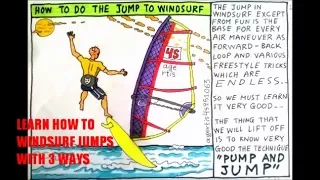 HOW TO DO THE JUMP TO WINDSURF
THE JUMP IN
WINDSURF EXCEPT
FROM FUN IS THE
BASE FOR EVERY
AIR MANEUVER AS
FORWARD-BACK
LOOP AND VARIOUS
FREESTYLE TRICKS
WHICH ARE
ENDLESS...
SO WE MUST LEARN
IT VERY GOOD...
THE THING THAT
WE WILL LIFT OFF
IS TO KNOW VERY
GOOD THE TECHNIQUE
"PUMP AND
JUMP"
45
age
rtis
LEARN HOW TO
WINDSURF JUMPS
WITH 3 WAYS